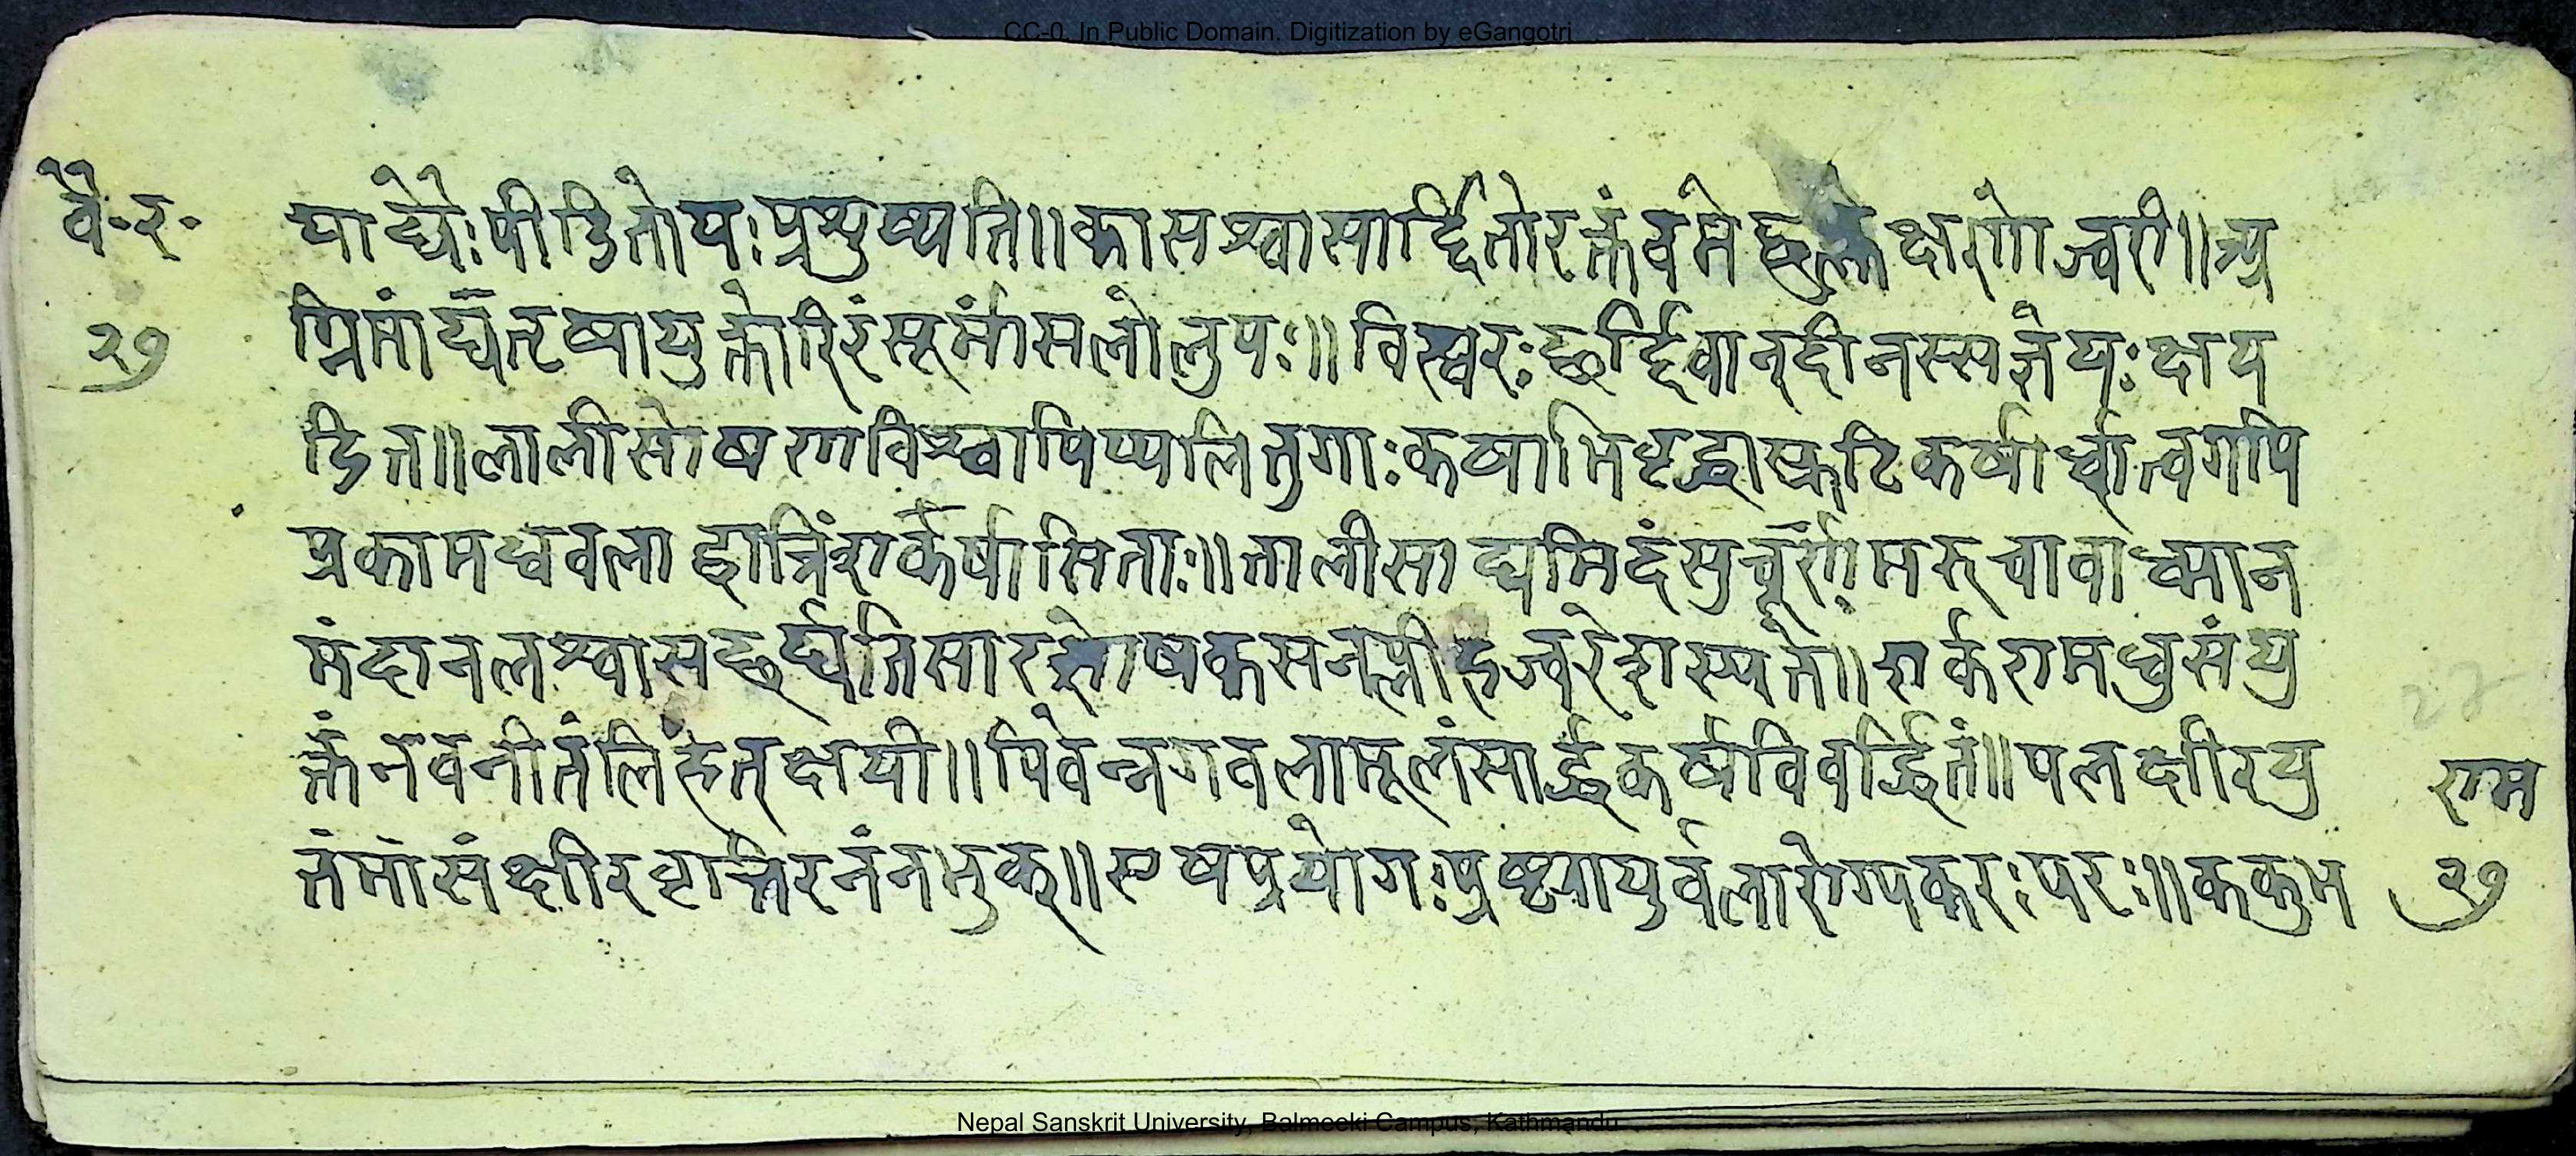 CC-0. In Public Domain. Digitization by eGangotri
वै॰र॰
२७
याद्यैःपीडितोयःप्रशुष्यति॥कासश्वासार्द्दितोरक्तंवमेछुक्लेक्षणोज्वरी॥अ
ग्निमांद्यतृषायुक्तोरिरंसूर्मांसलोलुपः॥विस्वरःछर्द्दिवान्दीनस्सज्ञेयःक्षय
डित॥लालीसोषणविश्वापिप्पलितुगाःकर्षाभिवृद्धास्क्रटिकर्षार्ध्वात्वगपि
प्रकामधवला द्वात्रिंशकैर्षासिताः॥तालीसाद्यमिदंसुचूर्णमरुचावाध्मान
मंदानलश्वासछर्द्यतिसारशोषकसनप्लीहज्वरेशस्यते॥शर्करामधुसंयु
क्तंनवनीतंलिहेत्क्षयी॥पिवेन्नगवलामूलंसार्द्धकर्षविवर्द्धितं॥पलक्षीरयु
तंमासंक्षीरवृत्तिरनंनभुक्॥एषप्रयोगःपुष्ट्यायुर्वलारोग्यकरःपरः॥ककुभ
राम
२७
Nepal Sanskrit University, Balmeeki Campus, Kathmandu